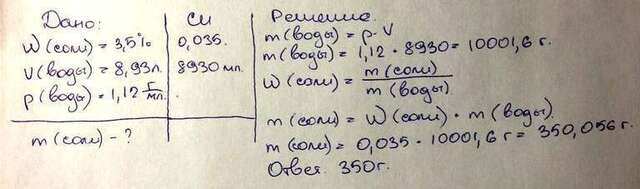 Дано:
W(соли) = 3,5%
V(воды) = 8,93л.
ρ(воды) = 1,12 г/мл.
m(соли) - ?
СИ
0,035.
8930 мл.
Решение.
m(воды) = ρ · V
m(воды) = 1,12 · 8930 = 10001,6 г.
W(соли) = m(соли) / m(воды)
m(соли) = W(соли) · m(воды).
m(соли) = 0,035 · 10001,6 г = 350,056 г.
Ответ. 350г.